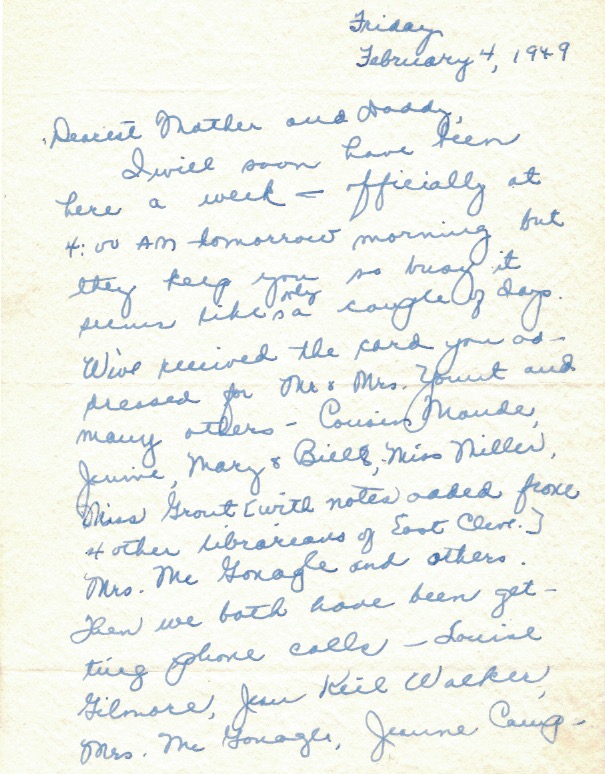 Friday
February 4, 1949
Dearest Mother and Daddy,
I will soon have been
here a week — officially at
4:00 AM tomorrow morning but
they keep you so busy it
seems like only a couple of days.
We've received the card you ad-
dressed for Mr & Mrs. Yount and
many others - Cousin Maude,
Jennie, Mary & Bill, Miss Miller,
Miss Grout [with notes added from
4 other librarians of East Cleve.]
Mrs. Mc Gonagle and others.
Then we both have been get-
ting phone calls — Louise
Gilmore, Jean Keil Walker,
Mrs. Mc Gonagle, Jeanne